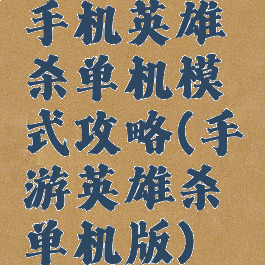 手机英雄
杀单机模
式攻略(手
游英雄杀
单机版)